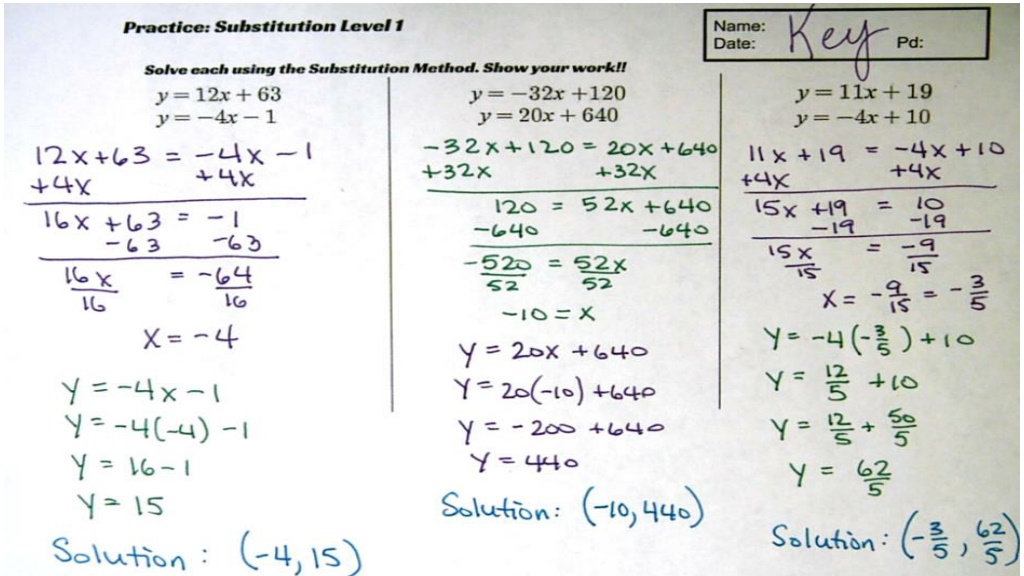 Practice: Substitution Level 1
Name: Key
Date:
Pd:
Solve each using the Substitution Method. Show your work!!
y = 12x + 63
y = −4x − 1
12x+63 = −4x − 1
+4x +4x
16x +63 = −1
−63 −63
16x/16 = −64/16
x = −4
y = −4x − 1
y = −4(−4) − 1
y = 16 − 1
y = 15
Solution : (−4, 15)
y = −32x +120
y = 20x + 640
−32x+120 = 20x+640
+32x +32x
120 = 52x +640
−640 −640
−520/52 = 52x/52
−10 = x
y = 20x +640
y = 20(−10) +640
y = −200 +640
y = 440
Solution: (−10, 440)
y = 11x + 19
y = −4x + 10
11x +19 = −4x +10
+4x +4x
15x +19 = 10
−19 −19
15x/15 = −9/15
x = −9/15 = −3/5
y = −4(−3/5) + 10
y = 12/5 +10
y = 12/5 + 50/5
y = 62/5
Solution: (−3/5, 62/5)